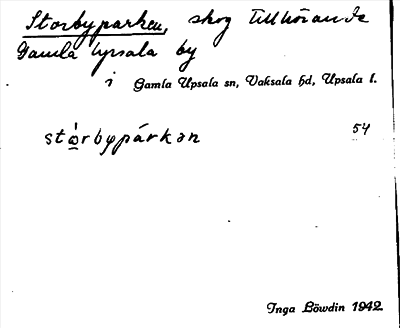 Storbyparken, skog tillhörande
Gamla Upsala by
i Gamla Upsala sn, Vaksala hd, Upsala l.
stὼ̣rbypárkən 54
Inga Löwdin 1942.